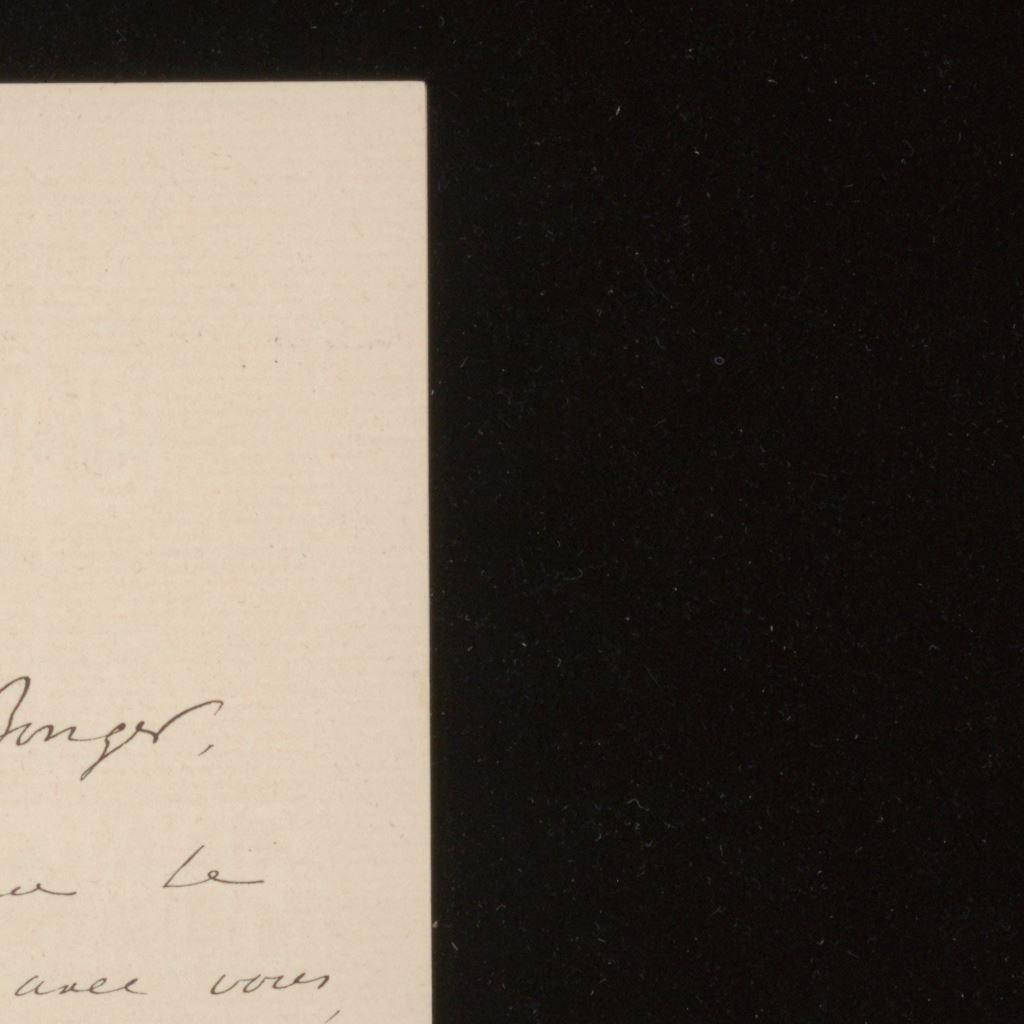 Bonger,
le
avec vous